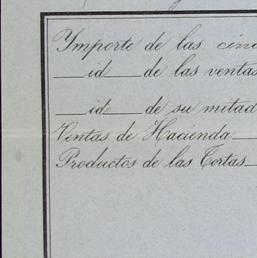 Importe de las cinc
id de las ventas
id de su mitad
Ventas de Hacienda
Productos de las Tortas